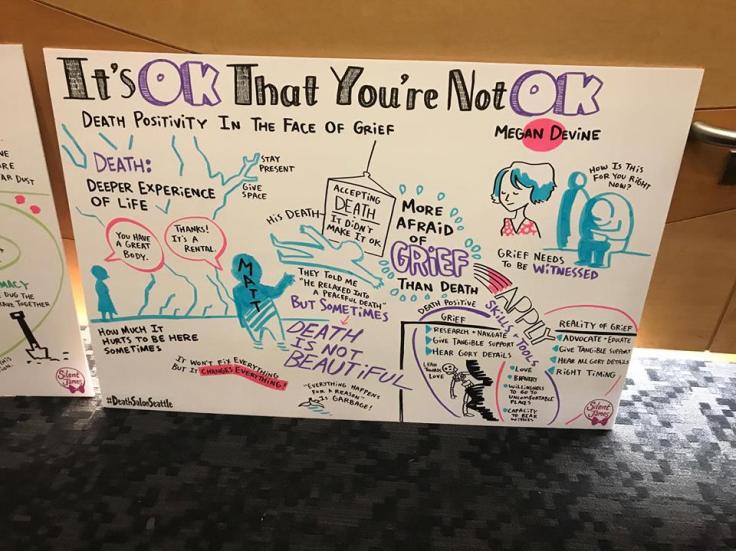 It's OK That You're Not OK
Death Positivity In The Face Of Grief
Megan Devine
Death:
Deeper Experience
Of Life
Stay
Present
Give
Space
You have
a great
body.
Thanks!
It's a
rental.
Matt
How much it
hurts to be here
sometimes
His death
Accepting
Death
It didn't
make it ok
They told me
"He relaxed into
a peaceful death"
But sometimes
Death
is not
beautiful
It won't fix everything
but it changes everything!
"Everything happens
for a reason"
is garbage!
More
afraid
of
Grief
than death
How is this
for you right
now?
Grief needs
to be witnessed
Apply
Skills & Tools
Death Positive
Grief
Research + Navigate
Give tangible support
Hear gory details
Lean
toward
love
Love
Bravery
Willingness
to go to
uncomfortable
places
Capacity
to bear
witness
Reality of Grief
Advocate + Educate
Give tangible support
Hear all gory details
Right timing
#DeathSalonSeattle
Silent
James
ar dust
macy
dug the
ave together
Silent
James